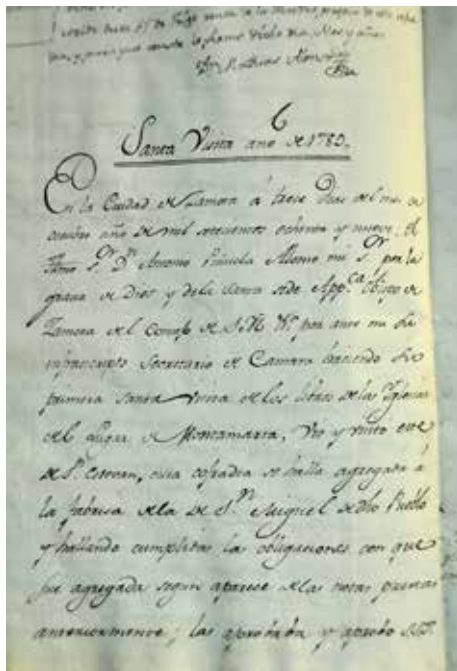 Santa Visita año de 1789.
En la Ciudad de Zamora á trece Dias del mes de
año de mil setecientos ochenta y nueve. El
Yllmo Sr. Dn. Antonio Piñuela Alonso mi Sr. por la
gracia de Dios y de la Santa sede Appca. Obispo de
Zamora del Consejo de S.M. &a. por ante mi el
infrascripto Secretario de Camara haciendo la
primera santa visita de los libros de las Iglesias
del lugar de Montamarta, Vió y visitó este
de Sn. Estevan, cuia cofradia se halla agregada á
la fabrica de la de Sn. Miguel de dho Pueblo
y hallando cumplidas las obligaciones con que
fue agregada segun aparece de las notas puestas
anteriormente; las aprobaba y aprobó S.S.Y.